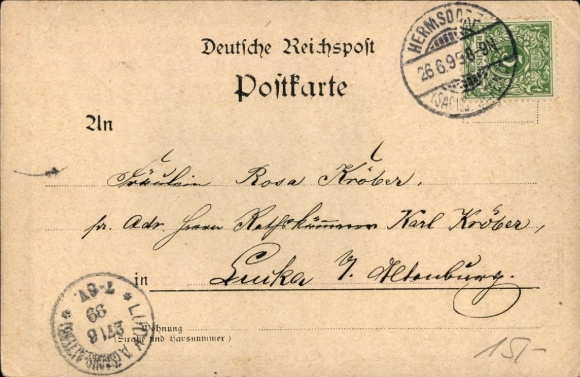 Deutsche Reichspost
Postkarte
HERMSDORF
26.6.99.8-9N
An
Fräulein Rosa Kröber,
pr. Adr. Herrn Rathskämmerer Karl Kröber,
in Lucka S. Altenburg.
LUCKA
27/6
99
7-8V
Wohnung
(Straße und Hausnummer)
15/-